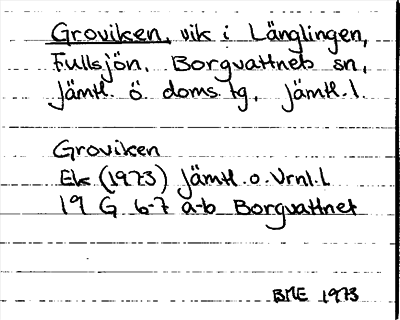 Groviken, vik i Länglingen,
Fullsjön, Borgvattnets sn,
Jämtl. ö doms.lg, Jämtl.l.
Groviken
Ek (1973) Jämtl.o.Vrnl.l
19 G 6-7 a-b Borgvattnet
BME 1973